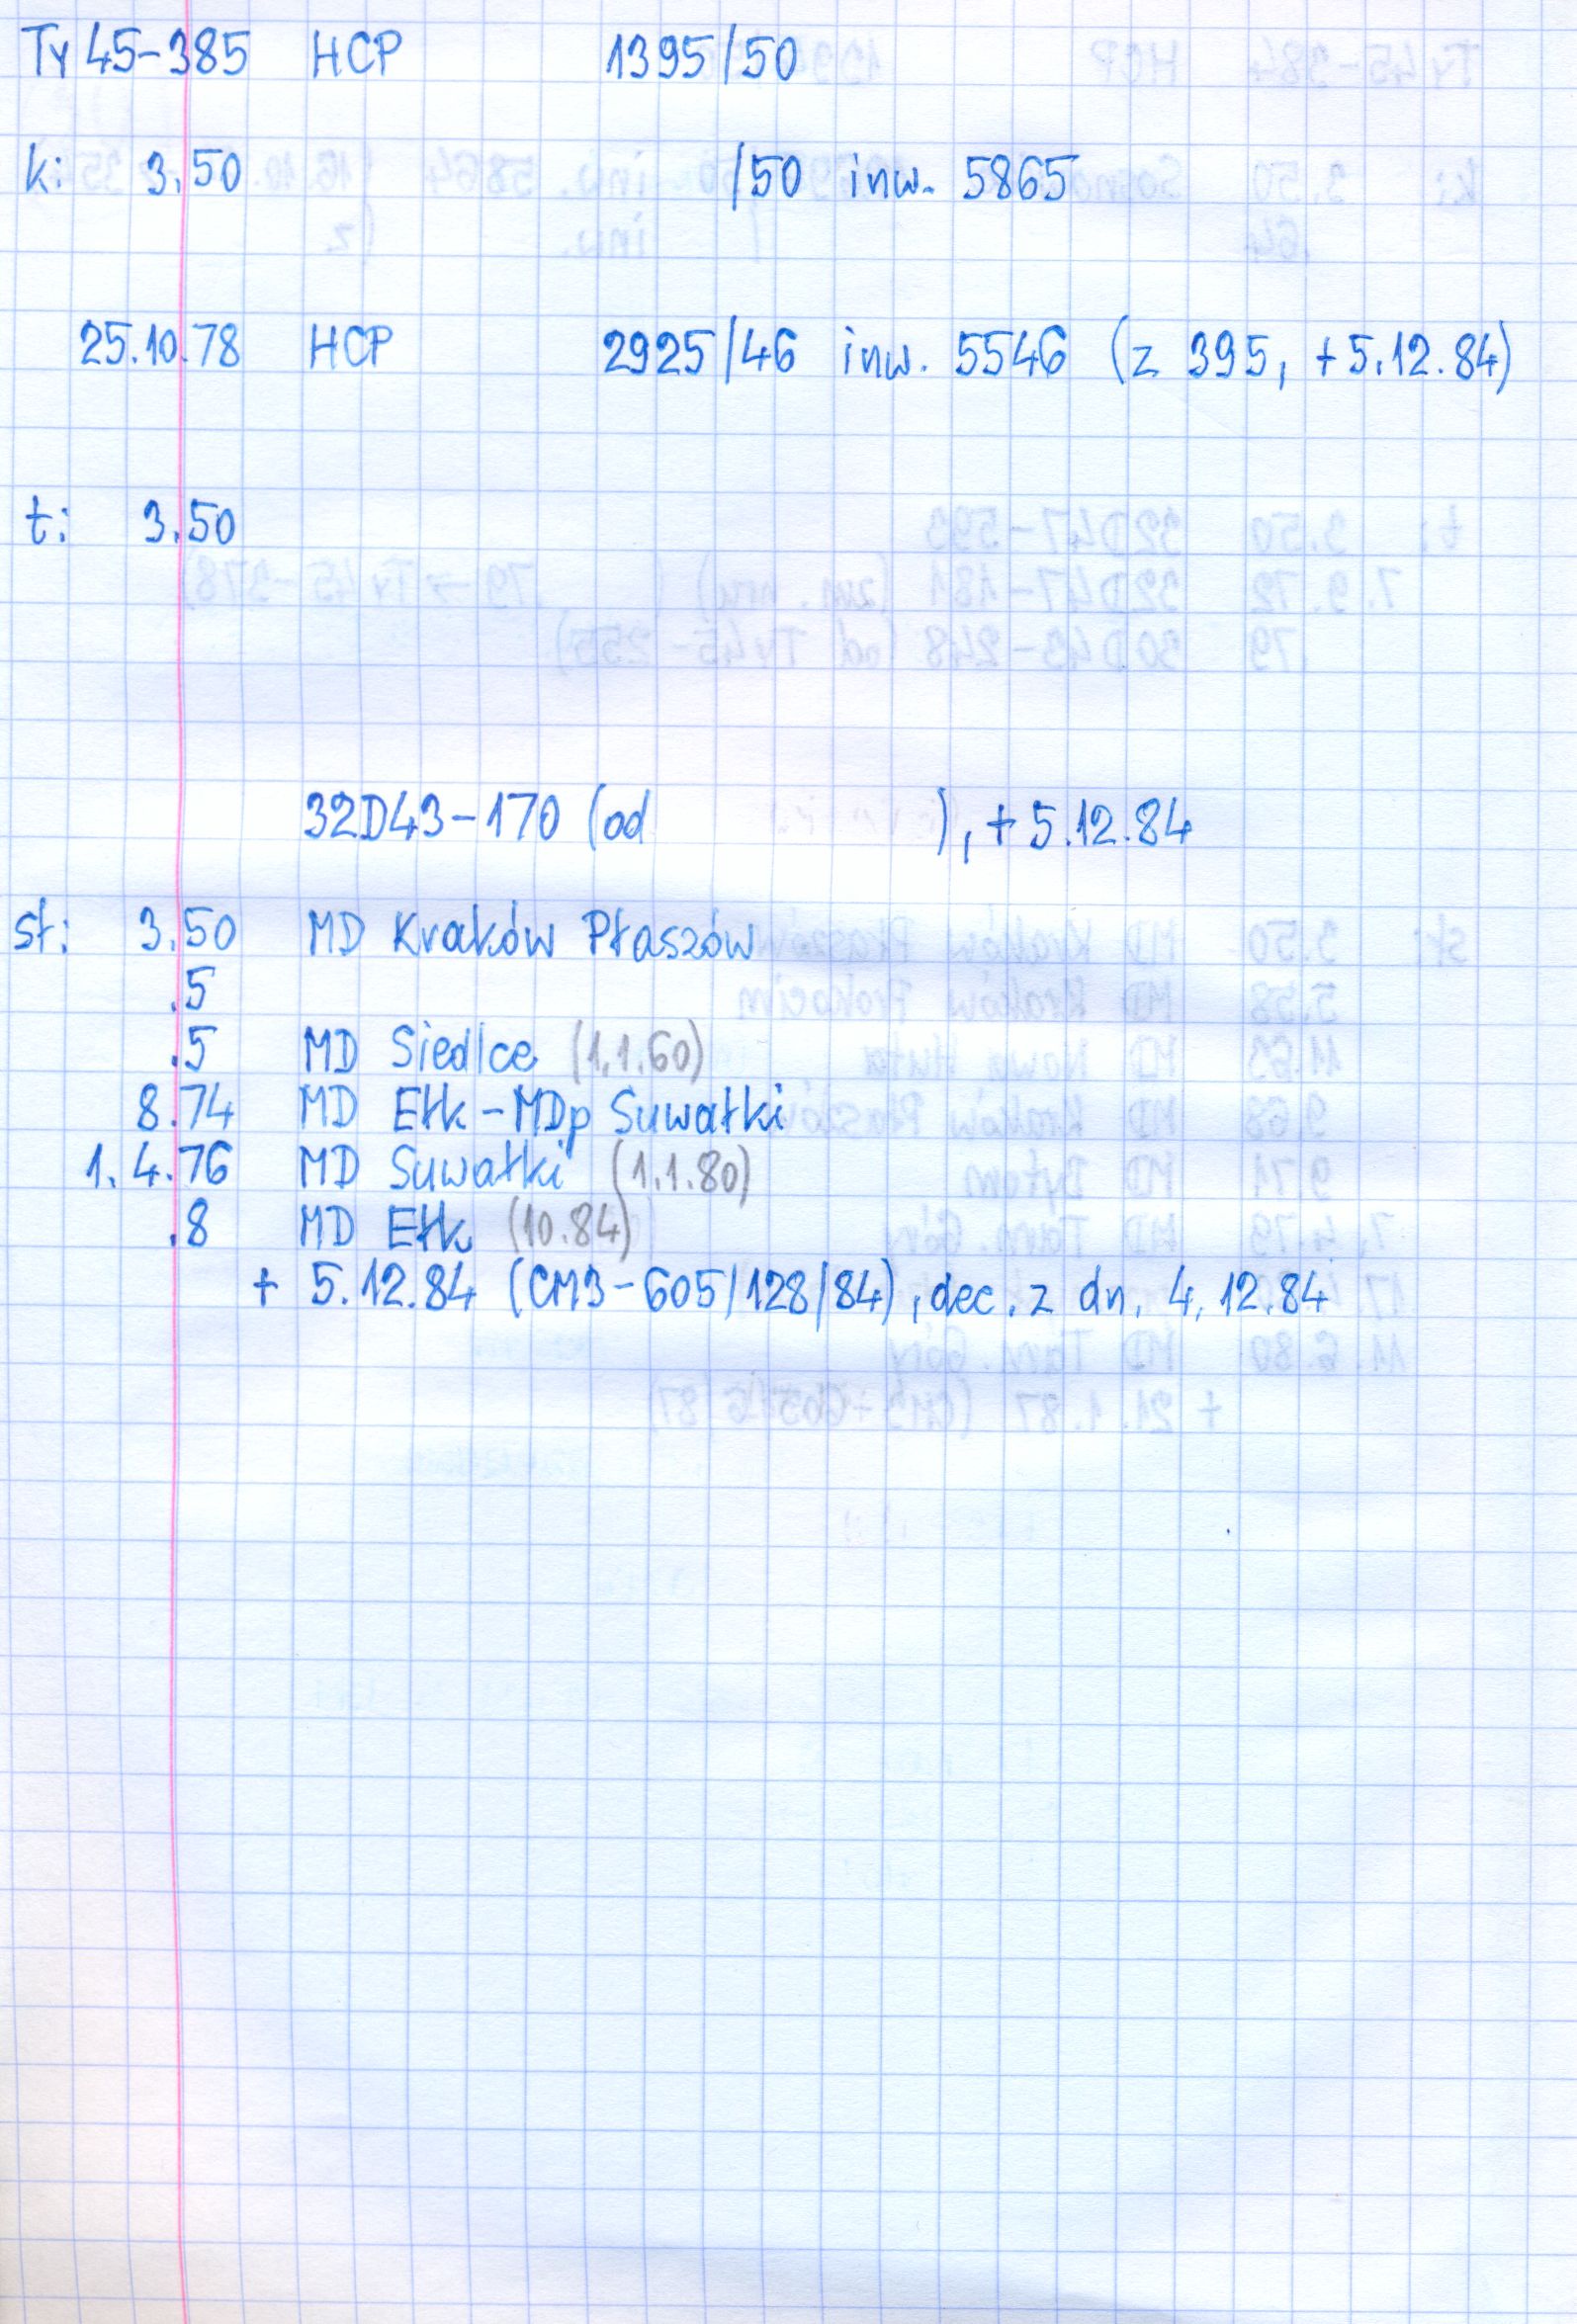 Ty45-385 HCP 1395/50
k: 3.50 /50 inw. 5865
25.10.78 HCP 2925/46 inw. 5546 (z 395, +5.12.84)
t: 3.50
32D43-170 (od ), +5.12.84
st: 3.50 MD Kraków Płaszów
.5
.5 MD Siedlce (1.1.60)
8.74 MD Ełk-MDp Suwałki
1.4.76 MD Suwałki (1.1.80)
.8 MD Ełk (10.84)
+ 5.12.84 (CM3-605/128/84), dec. z dn. 4.12.84